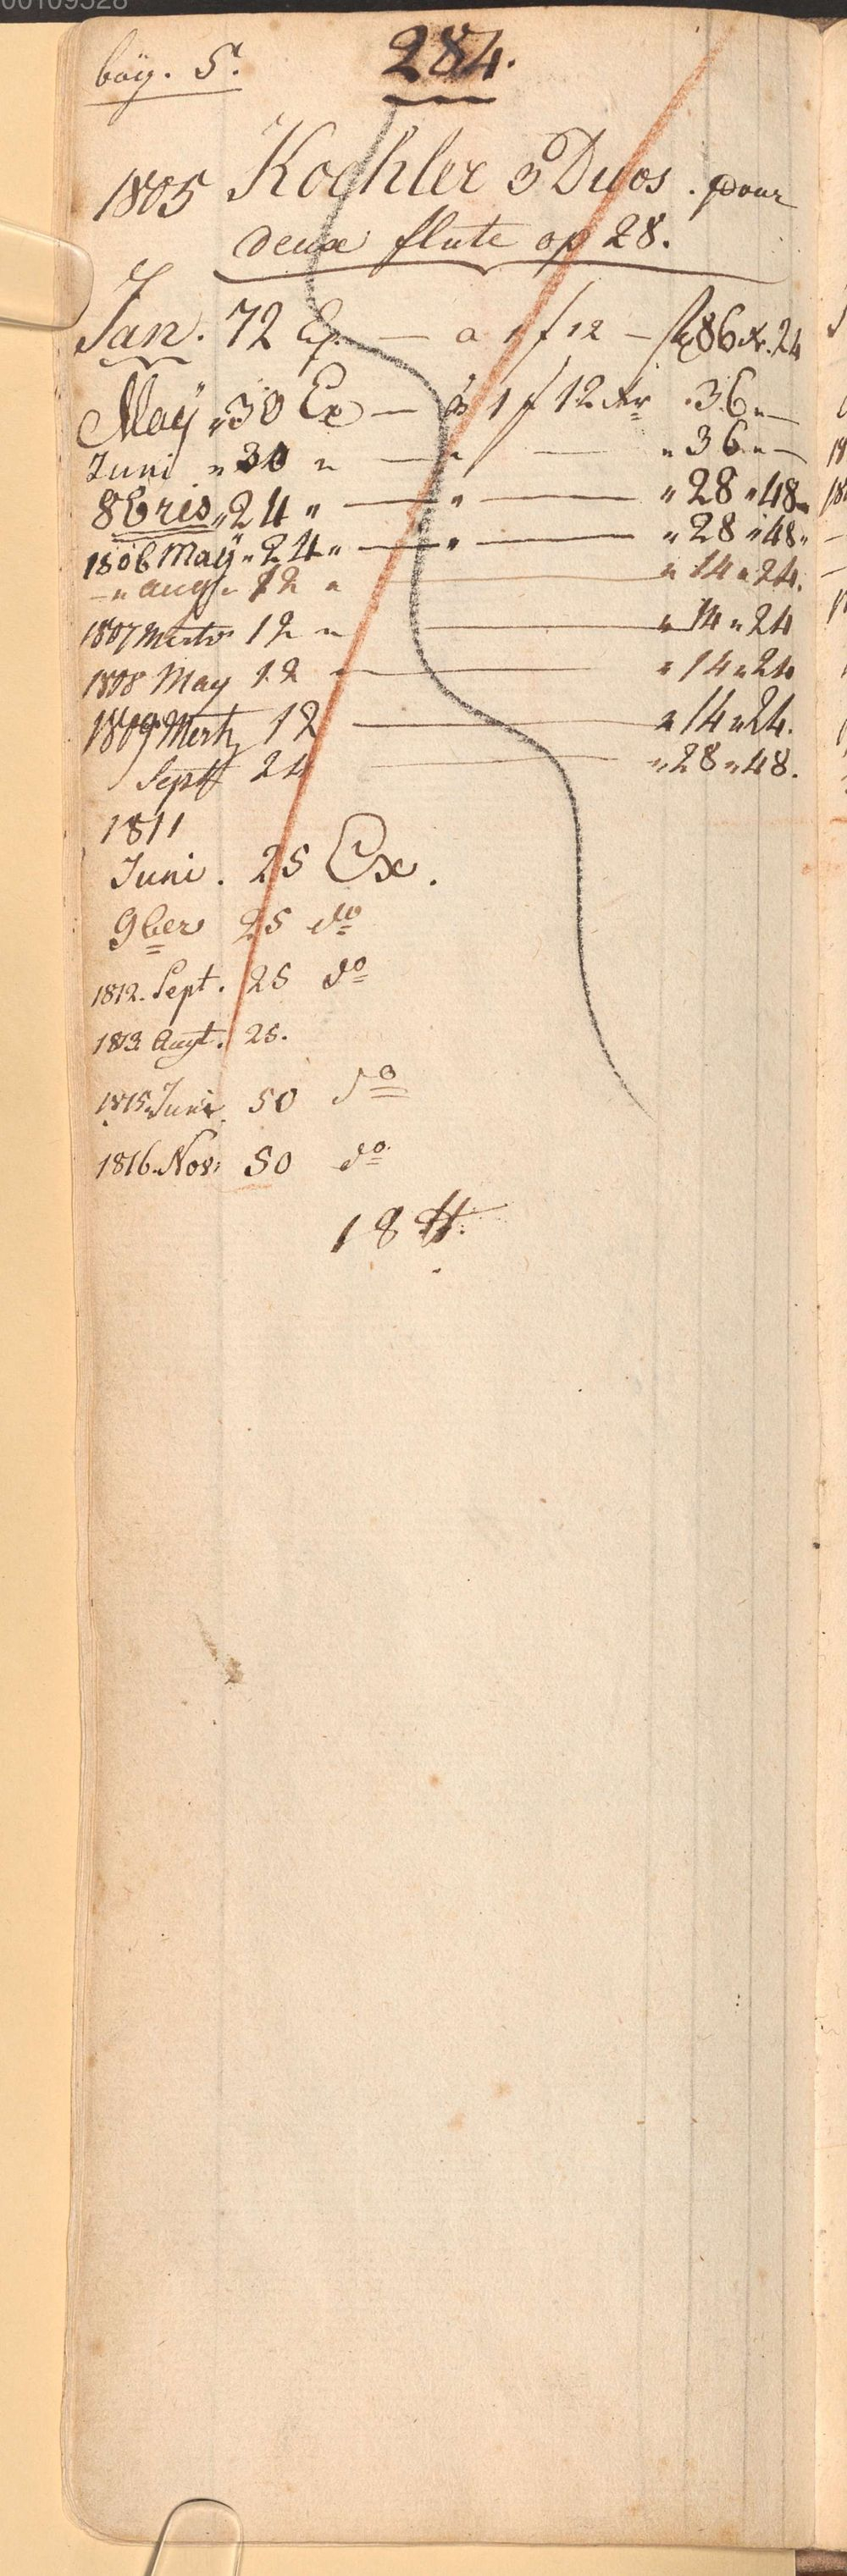 böy. 5.
284.
1805 Koehler 3 Duos. pour
deux flute op 28.
Jan. 72 Ex. — a 1 f 12 — f 86 Xr. 24
Maÿ " 30 Ex — à 1 f 12 Xr " 36 " —
Juni " 30 " — " — " 36 " —
8bris " 24 " — " — " 28 " 48 "
1806 Maÿ " 24 " — " — " 28 " 48 "
— " aug " 12 " — " 14 " 24.
1807 Mertz 12 " — " 14 " 24
1808 May 12 — " 14 " 24
1809 Mertz 12 — " 14 " 24.
Sept 24 — " 28 " 48.
1811
Juni. 25 Ex.
9ber 25 do
1812. Sept. 25 do
1813 Augt. 25.
1815. Juni 50 do
1816. Nov: 50 do
18